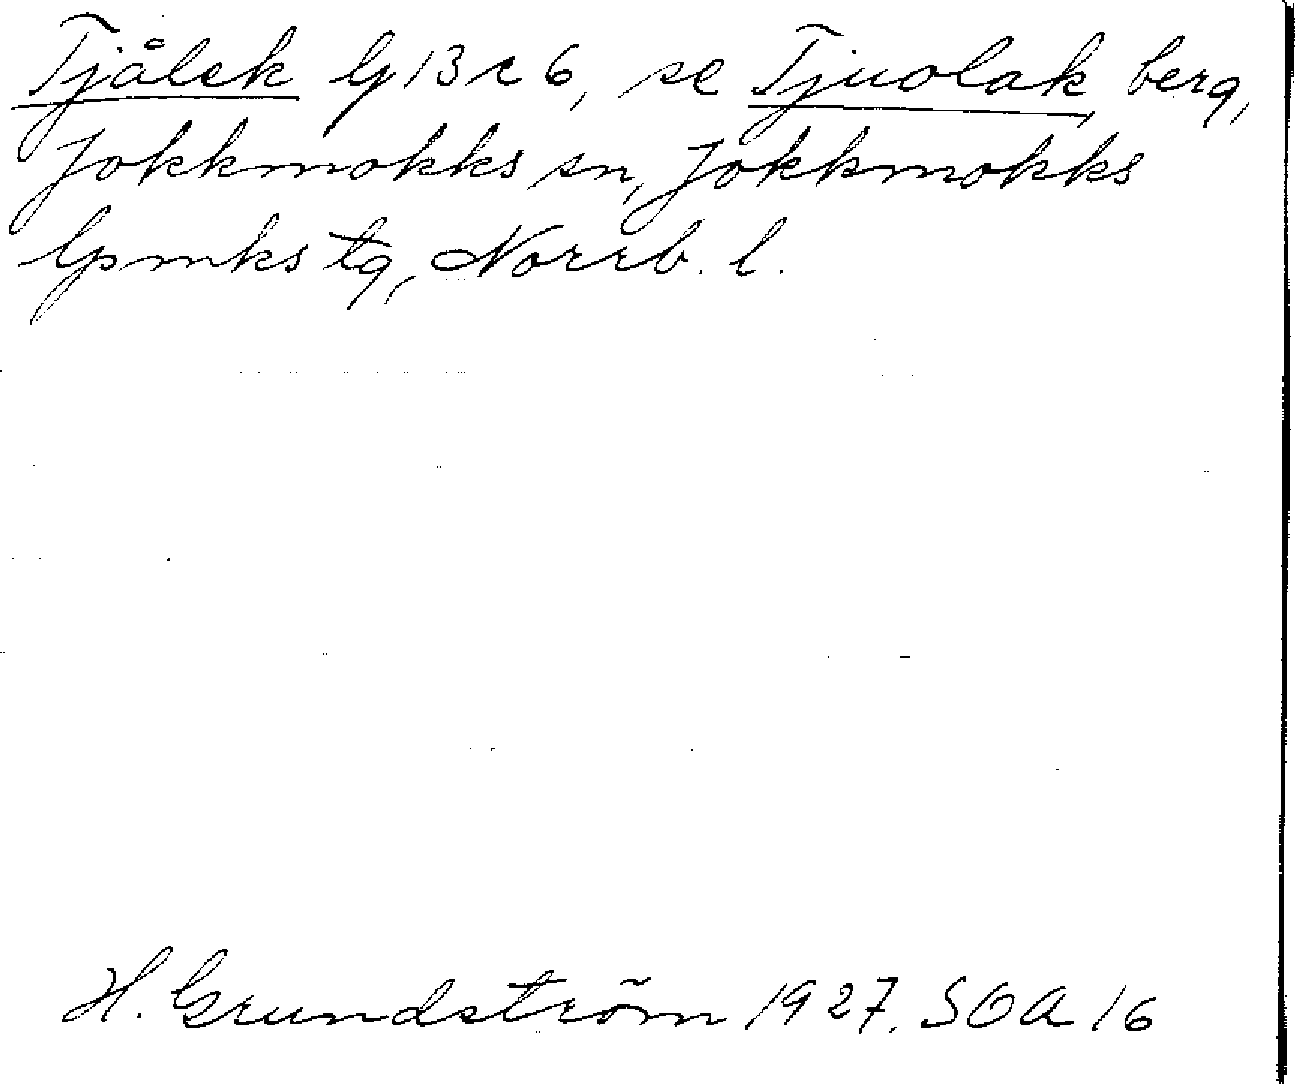 Tjålek G 13 c 6, se Tjuolak, berg,
Jokkmokks sn, Jokkmokks
lpmks tg, Norrb. l.
H. Grundström 1927. SOA 16